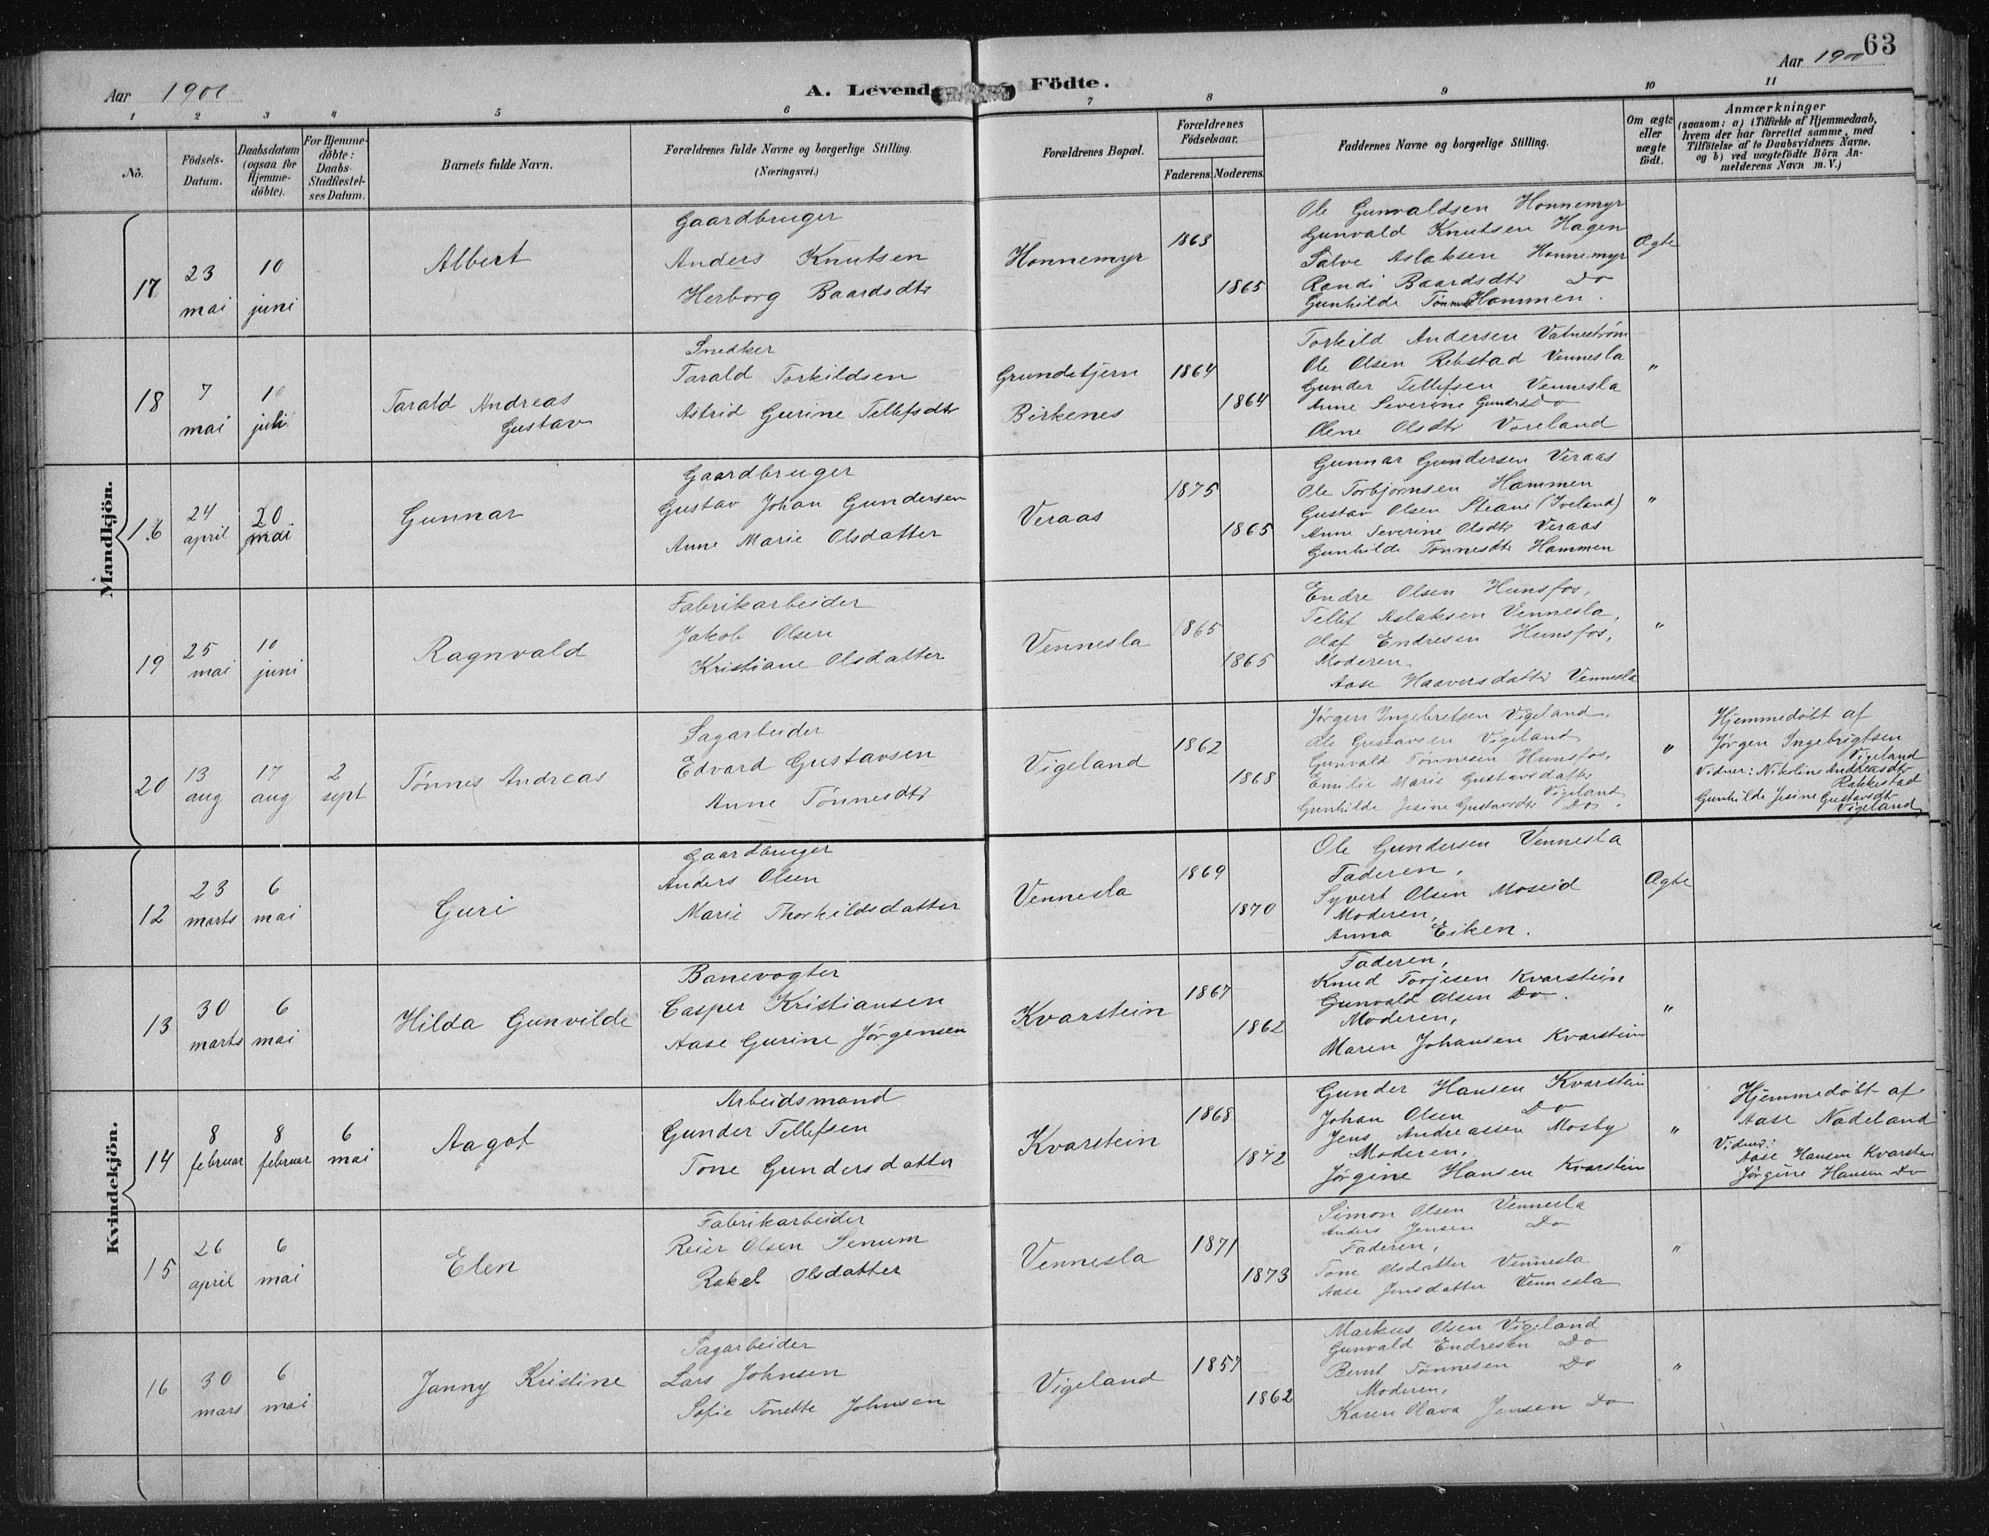 63
Aar 1900
A. Levende Födte.
Aar 1900
1 2 3 4 5 6 7 8 9 10 11
No.
Födsels-
Datum.
Daabsdatum
(ogsaa for
Hjemme-
döbte).
For Hjemme-
döbte:
Daabs-
Stadfæstel-
ses Datum.
Barnets fulde Navn.
Forældrenes fulde Navne og borgerlige Stilling.
(Næringsvei.)
Forældrenes Bopæl.
Forældrenes
Födselsaar.
Faderens. Moderens.
Faddernes Navne og borgerlige Stilling.
Om ægte
eller
uægte
födt.
Anmærkninger
(saasom: a) i Tilfælde af Hjemmedaab,
hvem der har forrettet samme, med
Tilföielse af to Daabsvidners Navne,
og b) ved uægtefödte Börn An-
melderens Navn m. V.)
Mandkjön.
17
23
mai
10
juni
Albert
Gaardbruger
Anders Knutsen
Herborg Baardsdtr
Honnemyr
1863
1865
Ole Gunvaldsen Honnemyr
Gunvald Knutsen Hagen
Salve Aslaksen Honnemyr
Randi Baardsdtr Do
Gunhilde Tønnesd Hommen.
Ægte
18
7
mai
1
juli
Tarald Andreas
Gustav
Snedker
Tarald Torkildsen
Astrid Gurine Tellefsdtr
Grundetjern
Birkenes
1864
1864
Torkild Andersen Vatnestrøm
Ole Olsen Rebstad Vennesla
Gunder Tellefsen Vennesla
Anne Severine Gundersd Do
Olene Olsdtr Vøreland
"
16
24
april
20
mai
Gunnar
Gaardbruger
Gustav Johan Gundersen
Anne Marie Olsdatter
Veraas
1875
1865
Gunnar Gundersen Veraas
Ole Torbjørnsen Hommen
Gustav Olsen Steane (Iveland)
Anne Severine Olsdtr Veraas
Gunhilde Tønnesdtr Hommen
"
19
25
mai
10
juni
Ragnvald
Fabrikarbeider
Jakob Olsen
Kristiane Olsdatter
Vennesla
1865
1865
Endre Olsen Hunsfos,
Tellef Aslaksen Vennesla,
Olaf Endresen Hunsfos,
Moderen,
Aase Haaversdatter Vennesla
"
20
13
aug
17
aug
2
sept
Tønnes Andreas
Sagarbeider
Edvard Gustavsen
Anne Tønnesdtr
Vigeland
1862
1868
Jørgen Ingebretsen Vigeland,
Ole Gustavsen Vigeland
Gunvald Tønnesen Hunsfos,
Emilie Marie Gustavsdatter
Vigeland
Gunhilde Jesine Gustavsdtr Do.
"
Hjemmedøbt af
Jørgen Ingebrigtsen
Vigeland
Vidner: Nikoline Andreasdtr
Rakkestad
Gunhilde Jesine Gustavsdt
Vigeland
Kvindekjön.
12
23
marts
6
mai
Guri
Gaardbruger
Anders Olsen
Marie Thorkildsdatter
Vennesla
1869
1870
Ole Gundersen Vennesla
Faderen,
Syvert Olsen Moseid
Moderen,
Anna Eiken.
Ægte
13
30
marts
6
mai
Hilda Gunvilde
Banevogter
Casper Kristiansen
Aase Gurine Jørgensen
Kvarstein
1867
1862
Faderen,
Knud Torjesen Kvarstein
Gunvald Olsen Do.
Moderen,
Maren Johansen Kvarstein
"
14
8
februar
8
februar
6
mai
Aagot
Arbeidsmand
Gunder Tellefsen
Tone Gundersdatter
Kvarstein
1868
1872
Gunder Hansen Kvarstein
Johan Olsen Do
Jens Andreassen Mosby
Moderen,
Jørgine Hansen Kvarstein
"
Hjemmedøbt af
Aase Nadeland
Vidner:
Aase Hansen Kvarstein
Jørgine Hansen Do
15
26
april
6
mai
Elen
Fabrikarbeider
Reier Olsen Senum
Rakel Olsdatter
Vennesla
1871
1873
Simon Olsen Vennesla
Anders Jensen Do
Faderen,
Tone Olsdatter Vennesla
Aase Jensdatter Vennesla
"
16
30
mars
6
mai
Janny Kristine
Sagarbeider
Lars Johnsen
Sofie Tonette Johnsen
Vigeland
1857
1862
Markus Olsen Vigeland
Gunvald Endresen Do
Bernt Tønnesen Do
Moderen,
Karen Olava Jensen Do
"